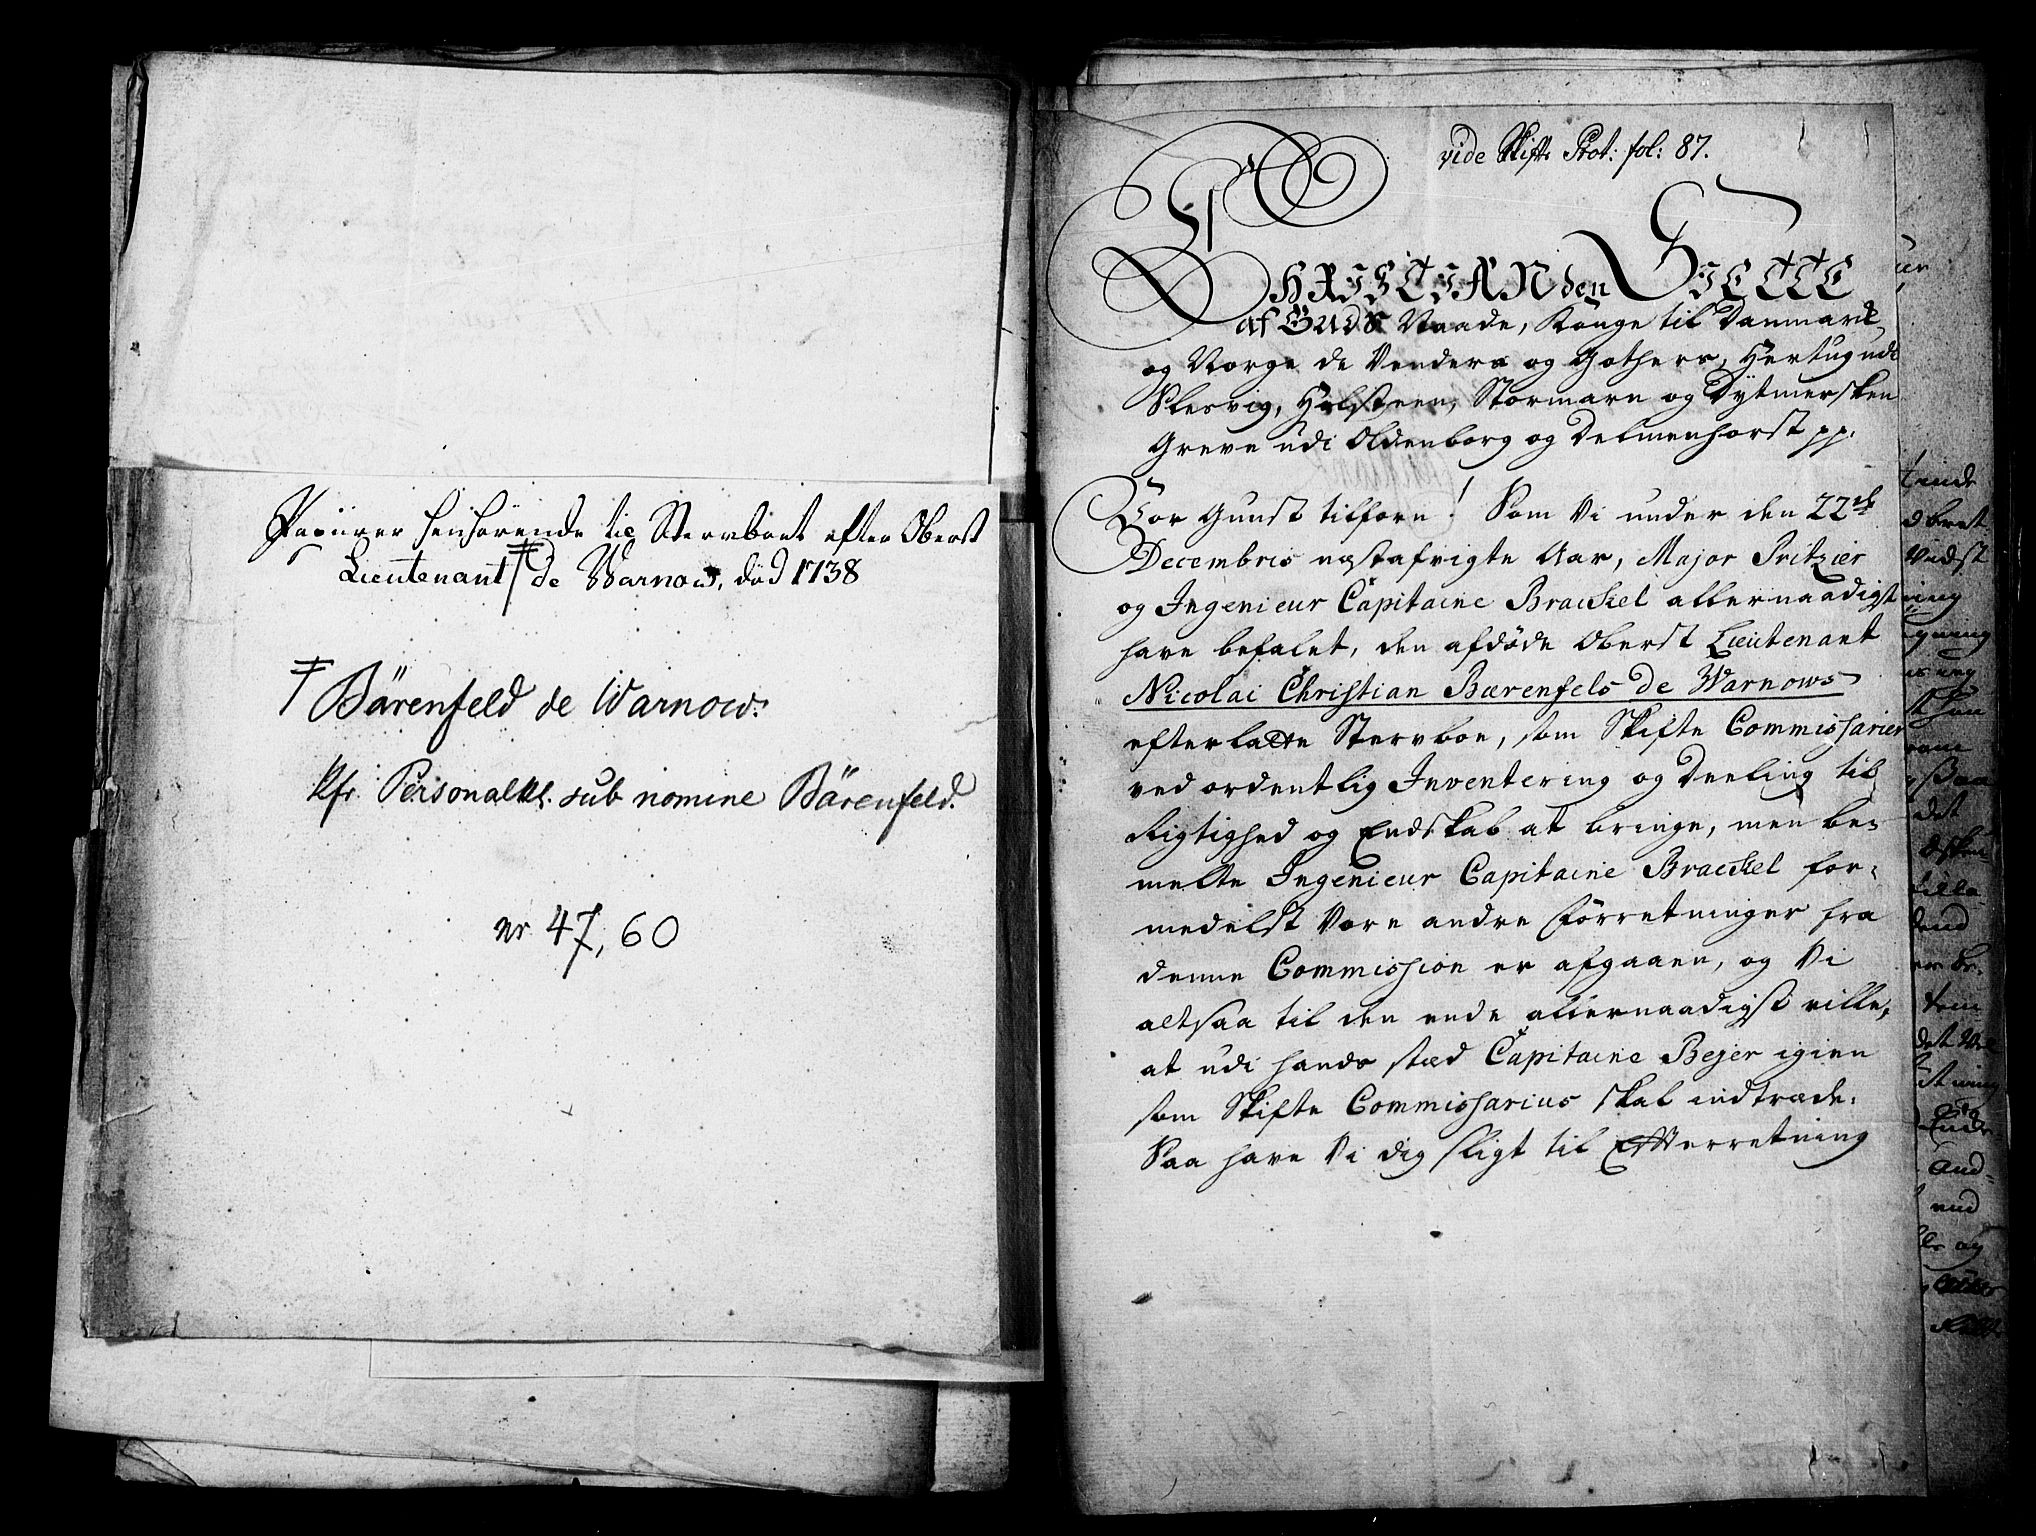 Papiirer henhørende til Stervboet efter Oberst
Lieutenant ‡ de Warnow, død 1738
‡ Bärenfeld de Warnow.
Kfr. Personalkl. sub nomine Bärenfeld.
nr 47, 60
vide Skifte Prot: fol: 87.
CHRISTIAN den SIETTE
af Guds Naade, Konge til Danmark
og Norge de Venders og Gothers, Hertug udi
Slesvig, Holsteen, Stormarn og Dytmersken
Greve udi Oldenborg og Delmenhorst pp.
Vor Gunst tilforn! Som Vi under den 22de
Decembris næstafvigte Aar, Major Pritzier
og Ingenieur Capitaine Braeckel allernaadigst
have befalet, den afdøde Oberst Lieutenant
Nicolai Christian Bærenfels de Warnows
efterladte Stervboe, som Skifte Commissarier
ved ordentlig Inventering og Deeling til
Rigtighed og Endskab at bringe, men be-
melte Ingenieur Capitaine Braeckel for-
medelst Vore andre Forretninger fra
denne Commission er afgaaen, og Vi
altsaa til den ende allernaadigst ville,
at udi hands stæd Capitaine Bejer igien
som Skifte Commissarius skal indtræde.
Saa have Vi dig sligt til Efterretning